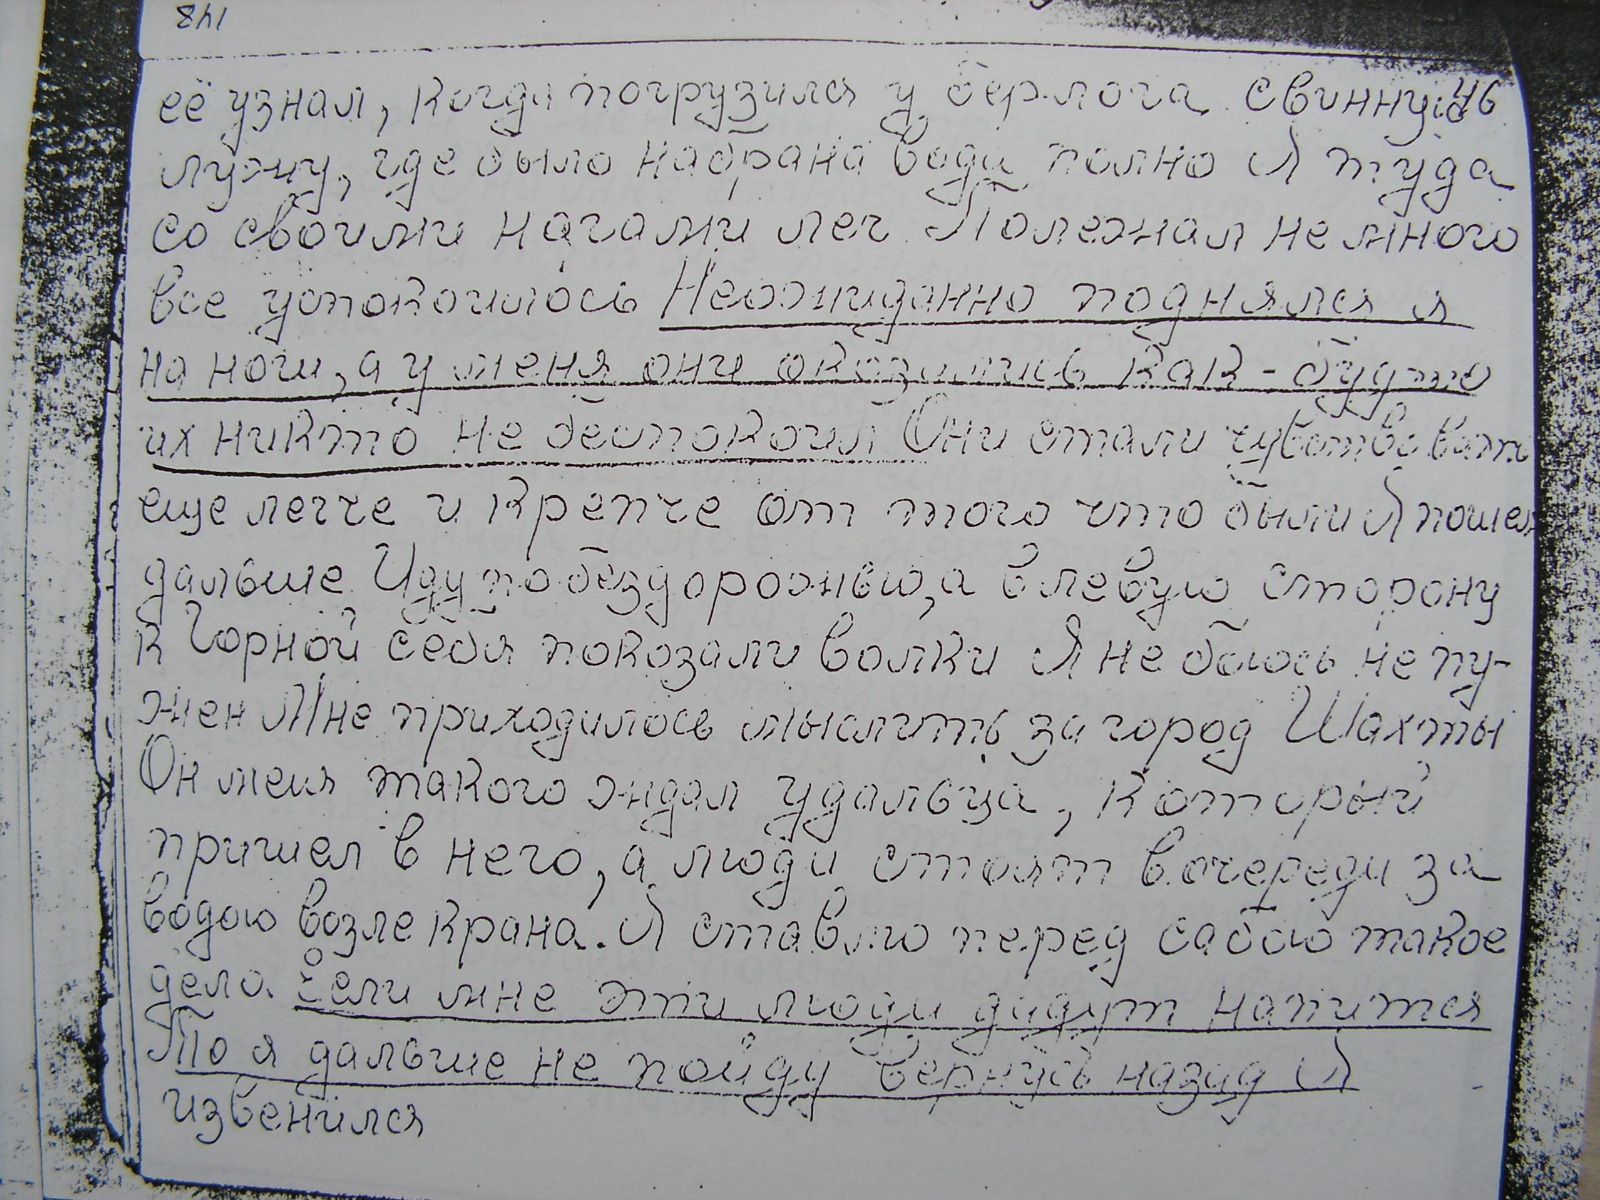 148
46
её узнал, когда погрузился у берлога свинную
лужу, где было набрана води полно Я туда
со своими нагами лег Полежал не много
все успокоилось Неожиданно поднялся я
на ноги, а у меня они оказились как-будто
их никто не беспокоил Они стали чувствовать
еще легче и крепче от того что были Я пошел
дальше Иду по бездорожью, а влевую сторону
к Горной себя покозали волки Я не боюсь не ну-
жен Мне приходилось мыслить за город Шахты
Он меня такого ждал удальца, который
пришел в него, а люди стоят в очереди за
водою возле крана. Я ставлю перед сабою такое
дело. Если мне эти люди дадут напитися
То я дальше не пойду вернусь назад Я
извенился